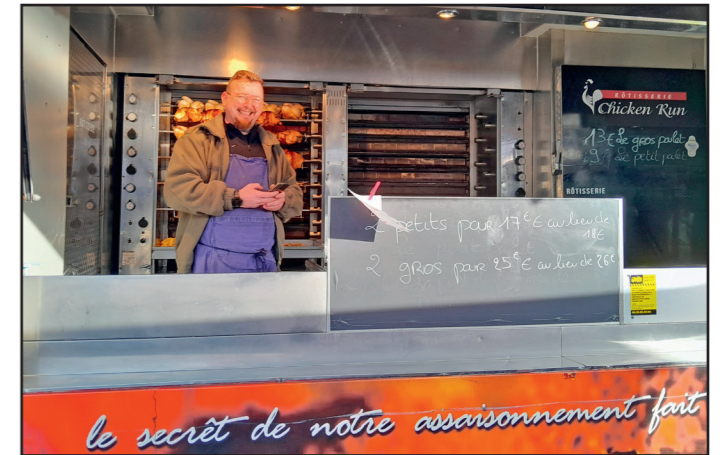 RÔTISSERIE
Chicken Run
13€ Le gros poulet
9€ Le petit poulet
RÔTISSERIE
2 petits par 17€ € au lieu de
18€
2 gros par 25€ € au lieu de 26€
le secrêt de notre assaisonnement fait